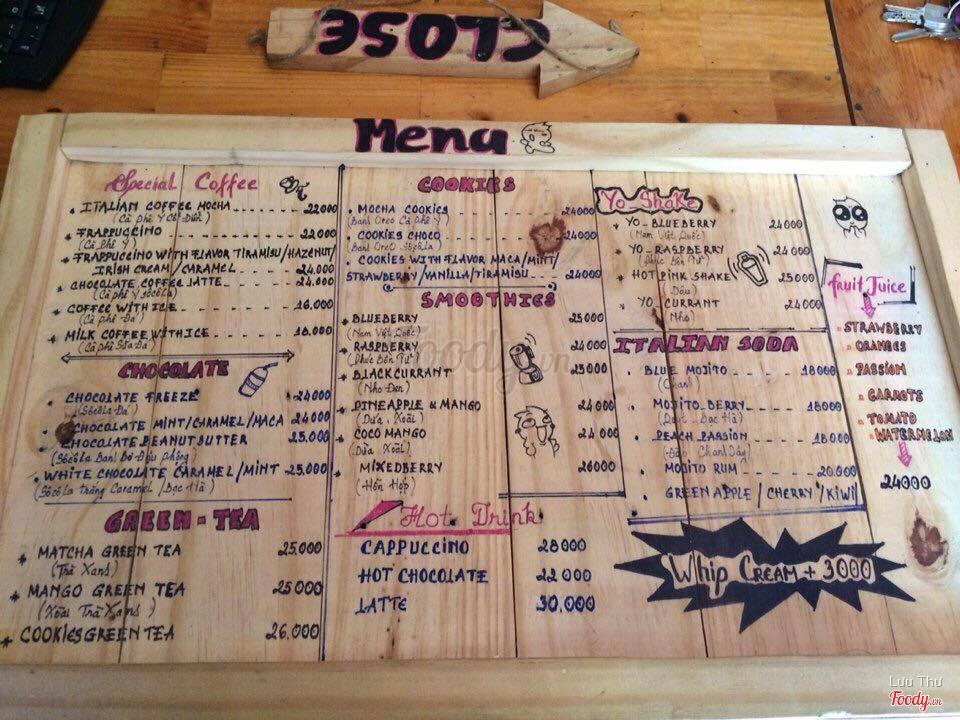 CLOSE
Menu
Special Coffee
* ITALIAN COFFEE MOCHA 22000
(Cà Phê Ý Cổ Điển)
* FRAPPUCCINO 22,000
(Cà Phê Ý)
* FRAPPUCCINO WITH FLAVOR TIRAMISU/HAZENUT/
IRISH CREAM/CARAMEL 24.000
* CHOCOLATE COFFEE LATTE 24.000
(Cà phê Ý Sôcôla)
* COFFEE WITH ICE 16.000
(Cà Phê Đá)
* MILK COFFEE WITH ICE 18.000
(Cà Phê Sữa Đá)
CHOCOLATE
* CHOCOLATE FREEZE 24000
(Sôcôla Đá)
CHOCOLATE MINT/CARAMEL/MACA 24000
CHOCOLATE PEANUT BUTTER 25.000
(Sôcôla Banh Bơ Đậu Phộng)
WHITE CHOCOLATE CARAMEL/MINT 25.000
(Sôcôla trắng Caramel / Bạc Hà)
GREEN - TEA
* MATCHA GREEN TEA 25.000
(Trà Xanh)
* MANGO GREEN TEA 25000
(Xoài Trà Xanh)
* COOKIES GREEN TEA 26.000
COOKIES
* MOCHA COOKIES 24000
(Banh Oreo Cà Phê Ý)
* COOKIES CHOCO 24000
(Banh OreO Sôcôla)
* COOKIES WITH FLAVOR MACA/MINT/
STRAWBERRY/VANILLA/TIRAMISU 24000
SMOOTHIES
* BLUEBERRY 25000
(Nam Việt Quốc)
* RASPBERRY 24000
(Phúc Bồn Tử)
* BLACKCURRANT 25000
(Nho Đen)
* PINEAPPLE & MANGO 24000
(Dứa, Xoài)
* COCO MANGO 24000
(Dừa Xoài)
* MIXEDBERRY 26000
(Hỗn Hợp)
Hot Drink
CAPPUCCINO 28.000
HOT CHOCOLATE 22000
LATTE 30.000
Yo Shake
* YO_BLUEBERRY 24000
(Nam Việt Quốc)
YO_RASPBERRY 24000
(Phúc Bồn Tử)
* HOT PINK SHAKE 25000
(Dâu)
* YO_CURRANT 24000
(Nho)
ITALIAN SODA
* BLUE MOJITO 18000
(Chanh)
* MOJITO_BERRY 18000
* PEACH PASSION 18000
(Đào Chanh Dây)
* MOJITO RUM 20.000
* GREEN APPLE / CHERRY / KIWI
Whip CREAM + 3000
fruit Juice
STRAWBERRY
ORANGES
PASSION
CARROTS
TOMATO
WATERMELON
24000
Foody.vn
Lưu Thư
Foody.vn